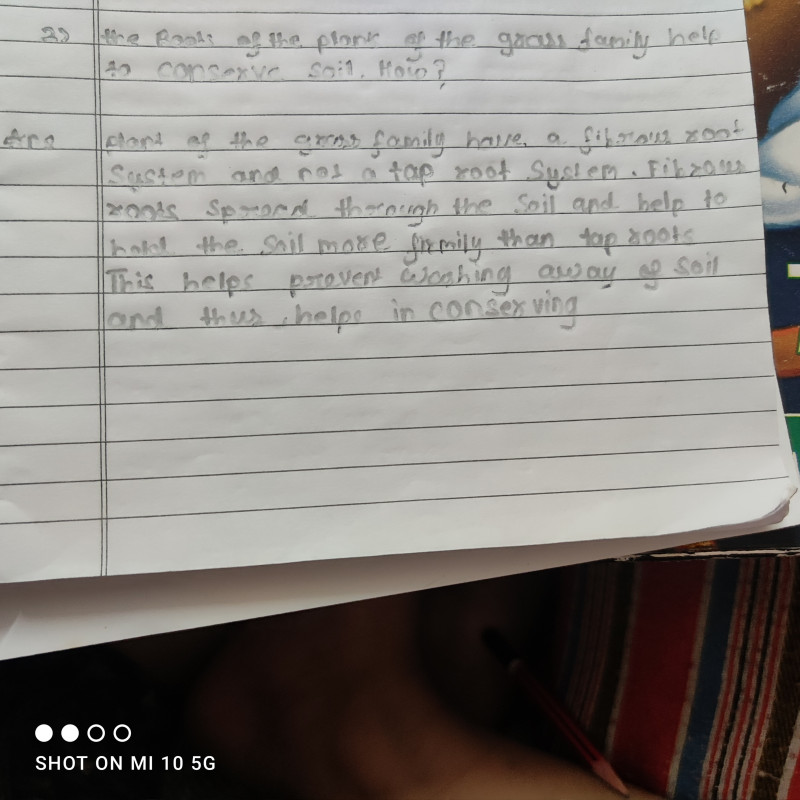 2) the Roots of the plant of the grass family help
to conserve soil. How?
Ans plant of the grass family have a fibrous root
System and not a tap root System. Fibrous
roots spread through the soil and help to
hold the soil more firmly than tap roots
This helps prevent washing away of soil
and thus helps in conserving
SHOT ON MI 10 5G